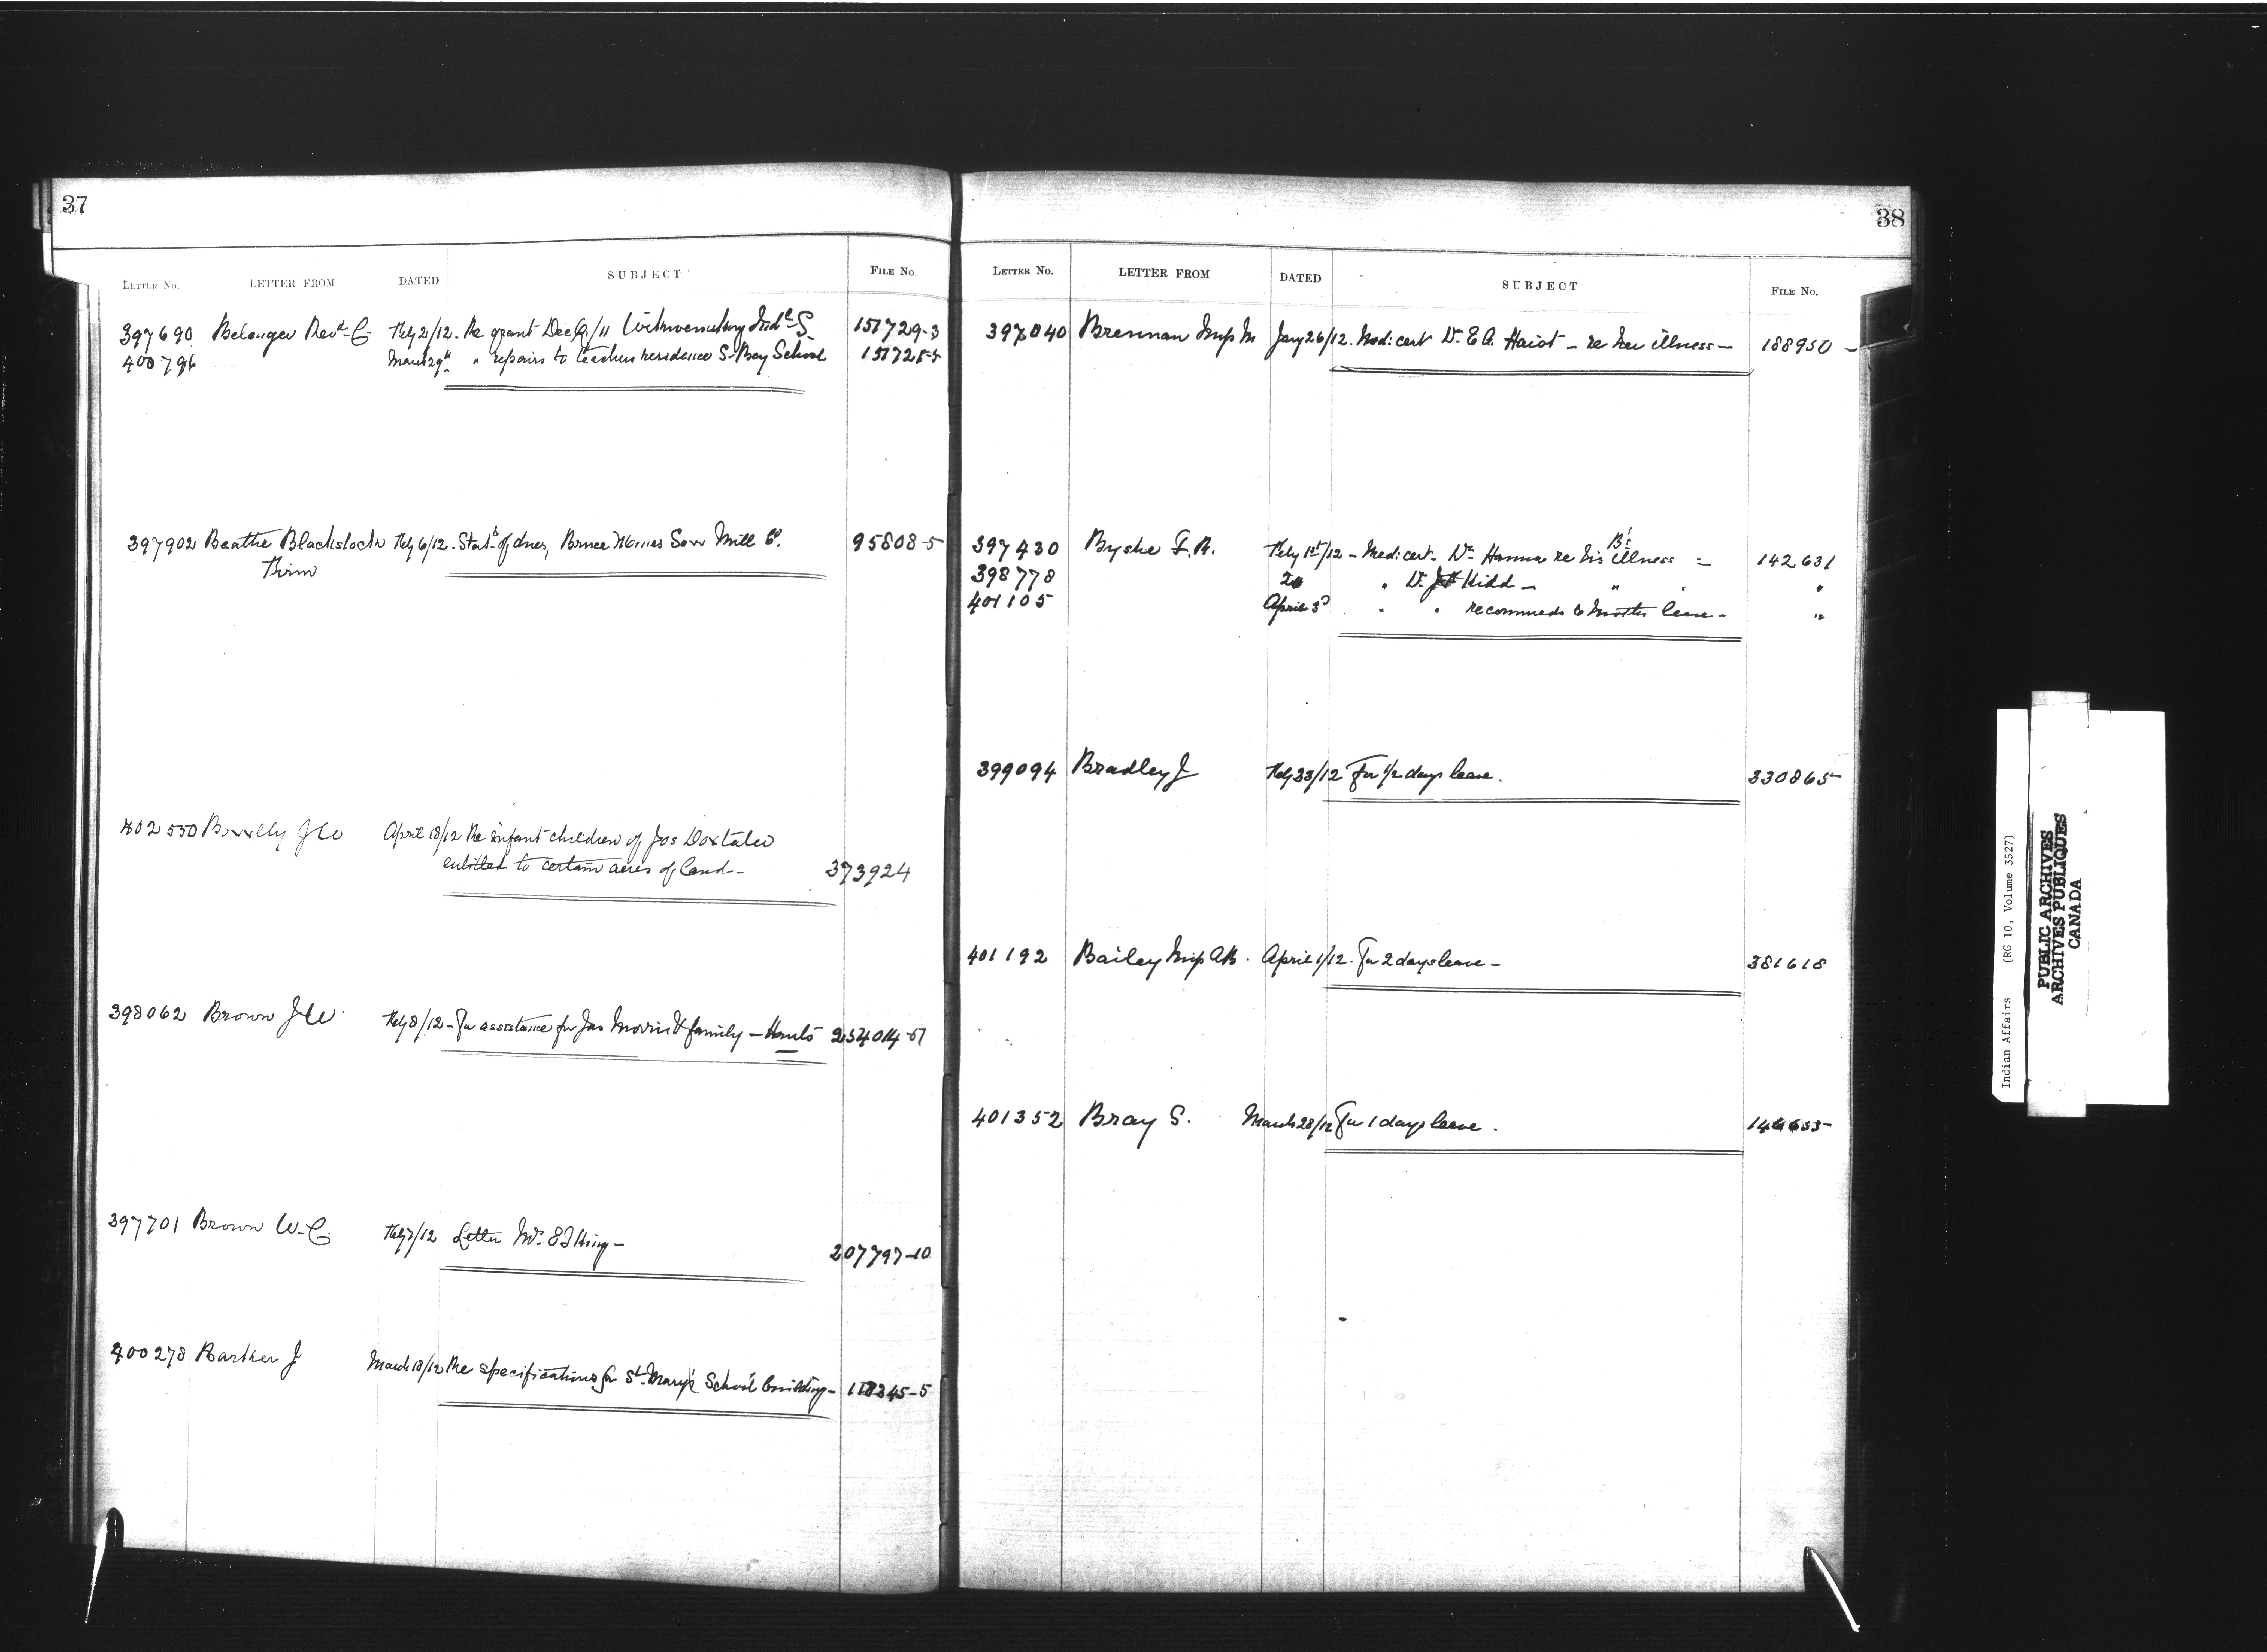 37
LETTER NO. LETTER FROM DATED SUBJECT FILE NO.
397690 Belanger Revd. C Feby 2/12. Re grant Dec Q/11 Indl S. 151729-3
400796 March 29th " repairs to teachers residence S. Bay School 151728-5
397902 Beathe Blackstock Feby 6/12. Statt of dues, Bruce Mines Saw Mill Co. 95808-5
402550 J W April 18/12 Re infant children of Jos Doxtater
entitled to certain acres of land - 373924
398062 Brown J W. Feby 8/12 - For assistance for Jas Morris & family - Hants 254014-
397701 Brown W. C. Feby /12 Letter Mrs. King - 207797-10
400278 Barker J March 18/12 Re specifications for St. Mary's School building - -5
38
LETTER NO. LETTER FROM DATED SUBJECT FILE NO.
397040 Brennan Miss M Jany 26/12. Med: cert Dr. E A. - re her illness - 188950 -
B's
397430 Byshe F. H. Feby 1st/12 - Med: cert. Dr. Hanna re his illness = 142631
398778 20 " Dr. Kidd - " " "
401105 April 3d " " recommends 6 months leave - "
399094 Bradley J Feby 23/12 For 1/2 days leave. 330865-
401192 Bailey Miss A B. April 1/12. For 2 days leave - 381618
401352 Bray S. March 28/12 For 1 days leave.
Indian Affairs (RG 10, Volume 3527)
PUBLIC ARCHIVES
ARCHIVES PUBLIQUES
CANADA